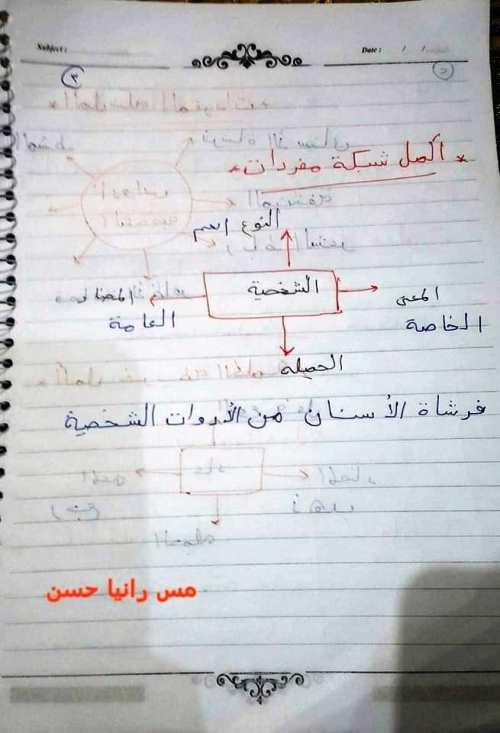 Subject :
Date : / /
٣
٥
* أكمل شبكة مفردات *
النوع اسم
الشخصية
المعنى
الخاصة
المضاد
العامة
الجملة
فرشاة الأسنان من الأدوات الشخصية
مس رانيا حسن